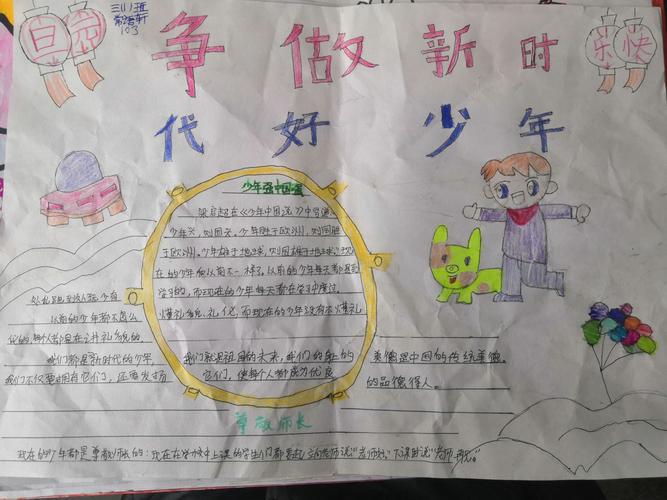 元旦
三(1)班
103
快乐
争做新时
代好少年
少年强中国强
梁启超在《少年中国说》中曾道
年兴,则国兴,少年胜于欧洲,则国胜
于欧洲。少年雄于地球,则国雄于地球。"现
在的少年和从前不一样了,以前的少年每天都
学习的,而现在的少年每天都在学习中度过。
懂礼貌、礼仪,而现在的少年没有不懂礼
以前的少年都不怎么
化的,每个人都是在
我们都是新时代的少年,
我们不仅要拥有它们,还要发扬
我们就是祖国的未来,我们的
它们,使每个人都成为优良
美德是中国的传统美德。
的品德得人。
尊敬师长
现在的少年都是尊敬师长的:现在在学校中上课的学生们都要起立向老师说"老师好"下课时说"老师